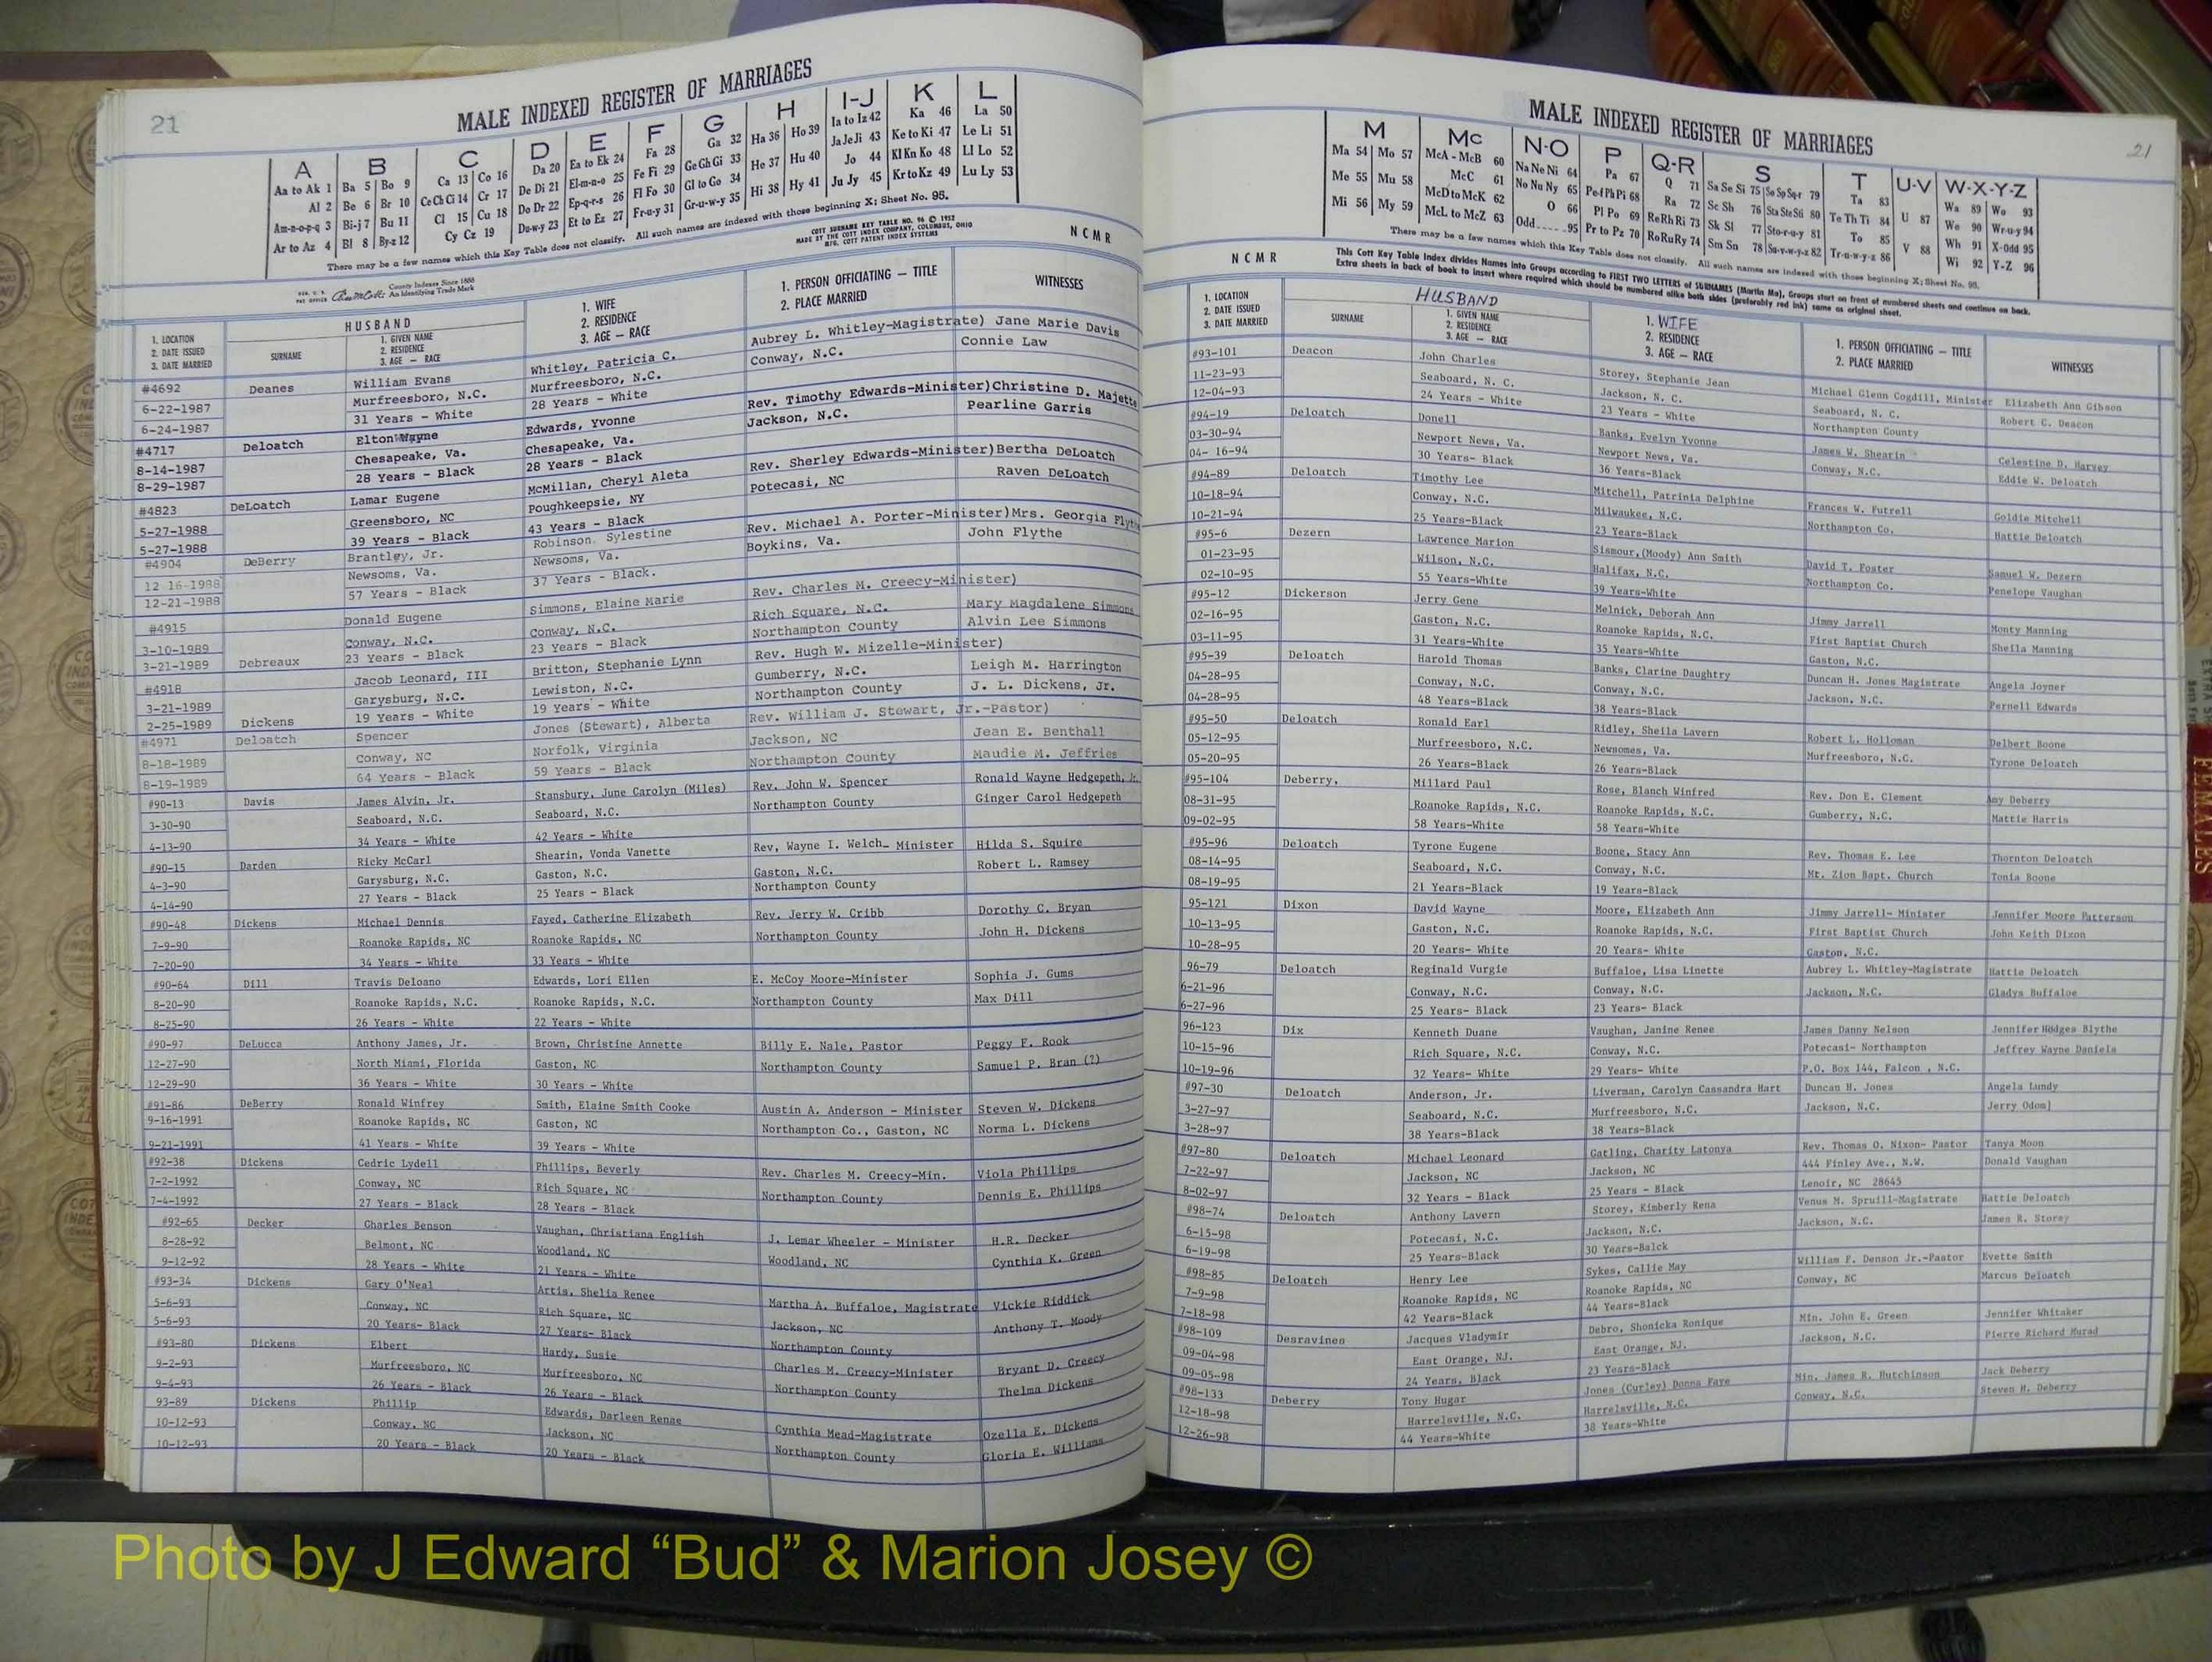 21
MALE INDEXED REGISTER OF MARRIAGES
A B C D E F G H I-J K L
Aa to Ak 1 Ba 5 Bo 9 Ca 13 Co 16 Da 20 Ea to Ek 24 Fa 28 Ga 32 Ha 36 Ho 39 Ia to Iz 42 Ka 46 La 50
Al 2 Be 6 Br 10 Ce Ch Ci 14 Cr 17 De Di 21 El-m-n-o 25 Fe Fi 29 Ge Gh Gi 33 He 37 Hu 40 Ja Je Ji 43 Ke to Ki 47 Le Li 51
Am-n-o-p-q 3 Bi-j 7 Bu 11 Cl 15 Cu 18 Do Dr 22 Ep-q-r-s 26 Fl Fo 30 Gl to Go 34 Hi 38 Hy 41 Jo 44 Kl Kn Ko 48 Ll Lo 52
Ar to Az 4 Bl 8 By-z 12 Cy Cz 19 Du-w-y 23 Et to Ez 27 Fr-u-y 31 Gr-u-w-y 35 Ju Jy 45 Kr to Kz 49 Lu Ly 53
There may be a few names which this Key Table does not classify. All such names are indexed with those beginning X; Sheet No. 95.
COTT SURNAME KEY TABLE NO. 96 © 1952
MADE BY THE COTT INDEX COMPANY, COLUMBUS, OHIO
MFG. COTT PATENT INDEX SYSTEMS
NCMR
County Indexes Since 1888
An Identifying Trade Mark
1. LOCATION
2. DATE ISSUED
3. DATE MARRIED
HUSBAND
SURNAME
1. GIVEN NAME
2. RESIDENCE
3. AGE — RACE
1. WIFE
2. RESIDENCE
3. AGE — RACE
1. PERSON OFFICIATING — TITLE
2. PLACE MARRIED
WITNESSES
#4692 Deanes William Evans Whitley, Patricia C. Aubrey L. Whitley-Magistrate) Jane Marie Davis
6-22-1987 Murfreesboro, N.C. Murfreesboro, N.C. Conway, N.C. Connie Law
6-24-1987 31 Years - White 28 Years - White
#4717 Deloatch Elton Wayne Edwards, Yvonne Rev. Timothy Edwards-Minister) Christine D. Majette
8-14-1987 Chesapeake, Va. Chesapeake, Va. Jackson, N.C. Pearline Garris
8-29-1987 28 Years - Black 28 Years - Black
#4823 DeLoatch Lamar Eugene McMillan, Cheryl Aleta Rev. Sherley Edwards-Minister) Bertha DeLoatch
5-27-1988 Greensboro, NC Poughkeepsie, NY Potecasi, NC Raven DeLoatch
5-27-1988 39 Years - Black 43 Years - Black
#4904 DeBerry Brantley, Jr. Robinson, Sylestine Rev. Michael A. Porter-Minister) Mrs. Georgia Flythe
12 16-1988 Newsoms, Va. Newsoms, Va. Boykins, Va. John Flythe
12-21-1988 57 Years - Black 37 Years - Black.
#4915 Donald Eugene Simmons, Elaine Marie Rev. Charles M. Creecy-Minister)
3-10-1989 Conway, N.C. Conway, N.C. Rich Square, N.C. Mary Magdalene Simmons
3-21-1989 Debreaux 23 Years - Black 23 Years - Black Northampton County Alvin Lee Simmons
#4918 Jacob Leonard, III Britton, Stephanie Lynn Rev. Hugh W. Mizelle-Minister)
3-21-1989 Garysburg, N.C. Lewiston, N.C. Gumberry, N.C. Leigh M. Harrington
2-25-1989 Dickens 19 Years - White 19 Years - White Northampton County J. L. Dickens, Jr.
#4971 Deloatch Spencer Jones (Stewart), Alberta Rev. William J. Stewart, Jr.-Pastor)
8-18-1989 Conway, NC Norfolk, Virginia Jackson, NC Jean E. Benthall
8-19-1989 64 Years - Black 59 Years - Black Northampton County Maudie M. Jeffries
#90-13 Davis James Alvin, Jr. Stansbury, June Carolyn (Miles) Rev. John W. Spencer Ronald Wayne Hedgepeth, Jr.
3-30-90 Seaboard, N.C. Seaboard, N.C. Northampton County Ginger Carol Hedgepeth
4-13-90 34 Years - White 42 Years - White
#90-15 Darden Ricky McCarl Shearin, Vonda Vanette Rev, Wayne I. Welch- Minister Hilda S. Squire
4-3-90 Garysburg, N.C. Gaston, N.C. Gaston, N.C. Robert L. Ramsey
4-14-90 27 Years - Black 25 Years - Black Northampton County
#90-48 Dickens Michael Dennis Fayed, Catherine Elizabeth Rev. Jerry W. Cribb Dorothy C. Bryan
7-9-90 Roanoke Rapids, NC Roanoke Rapids, NC Northampton County John H. Dickens
7-20-90 34 Years - White 33 Years - White
#90-64 Dill Travis Deloano Edwards, Lori Ellen E. McCoy Moore-Minister Sophia J. Gums
8-20-90 Roanoke Rapids, N.C. Roanoke Rapids, N.C. Northampton County Max Dill
8-25-90 26 Years - White 22 Years - White
#90-97 DeLucca Anthony James, Jr. Brown, Christine Annette Billy E. Nale, Pastor Peggy F. Rook
12-27-90 North Miami, Florida Gaston, NC Northampton County Samuel P. Bran (?)
12-29-90 36 Years - White 30 Years - White
#91-86 DeBerry Ronald Winfrey Smith, Elaine Smith Cooke Austin A. Anderson - Minister Steven W. Dickens
9-16-1991 Roanoke Rapids, NC Gaston, NC Northampton Co., Gaston, NC Norma L. Dickens
9-21-1991 41 Years - White 39 Years - White
#92-38 Dickens Cedric Lydell Phillips, Beverly Rev. Charles M. Creecy-Min. Viola Phillips
7-2-1992 Conway, NC Rich Square, NC Northampton County Dennis E. Phillips
7-4-1992 27 Years - Black 28 Years - Black
#92-65 Decker Charles Benson Vaughan, Christiana English J. Lemar Wheeler - Minister H.R. Decker
8-28-92 Belmont, NC Woodland, NC Woodland, NC Cynthia K. Green
9-12-92 28 Years - White 21 Years - White
#93-34 Dickens Gary O'Neal Artis, Shelia Renee Martha A. Buffaloe, Magistrate Vickie Riddick
5-6-93 Conway, NC Rich Square, NC Jackson, NC Anthony T. Moody
5-6-93 20 Years- Black 27 Years- Black Northampton County
#93-80 Dickens Elbert Hardy, Susie Charles M. Creecy-Minister Bryant D. Creecy
9-2-93 Murfreesboro, NC Murfreesboro, NC Northampton County Thelma Dickens
9-4-93 26 Years - Black 26 Years - Black
93-89 Dickens Phillip Edwards, Darleen Renae Cynthia Mead-Magistrate Ozella E. Dickens
10-12-93 Conway, NC Jackson, NC Northampton County Gloria E. Williams
10-12-93 20 Years - Black 20 Years - Black
21
MALE INDEXED REGISTER OF MARRIAGES
M Mc N-O P Q-R S T U-V W-X-Y-Z
Ma 54 Mo 57 McA - McB 60 Na Ne Ni 64 Pa 67 Q 71 Sa Se Si 75 So Sp Sq-r 79 Ta 83 Wa 89 Wo 93
Me 55 Mu 58 McC 61 No Nu Ny 65 Pe-f Ph Pi 68 Ra 72 Sc Sh 76 Sta Ste Sti 80 Te Th Ti 84 U 87 We 90 Wr-u-y 94
Mi 56 My 59 McD to McK 62 O 66 Pl Po 69 Re Rh Ri 73 Sk Sl 77 Sto-r-u-y 81 To 85 Wh 91 X-Odd 95
McL to McZ 63 Odd 95 Pr to Pz 70 Ro Ru Ry 74 Sm Sn 78 Su-v-w-y-z 82 Tr-u-w-y-z 86 V 88 Wi 92 Y-Z 96
There may be a few names which this Key Table does not classify. All such names are indexed with those beginning X; Sheet No. 95.
NCMR
This Cott Key Table Index divides Names into Groups according to FIRST TWO LETTERS of SURNAMES (Martin Ma), Groups start on front of numbered sheets and continue on back.
Extra sheets in back of book to insert where required which should be numbered alike both sides (preferably red ink) same as original sheet.
1. LOCATION
2. DATE ISSUED
3. DATE MARRIED
HUSBAND
SURNAME
1. GIVEN NAME
2. RESIDENCE
3. AGE — RACE
1. WIFE
2. RESIDENCE
3. AGE — RACE
1. PERSON OFFICIATING — TITLE
2. PLACE MARRIED
WITNESSES
#93-101 Deacon John Charles Storey, Stephanie Jean Michael Glenn Cogdill, Minister Elizabeth Ann Gibson
11-23-93 Seaboard, N. C. Jackson, N. C. Seaboard, N. C. Robert C. Deacon
12-04-93 24 Years - White 23 Years - White Northampton County
#94-19 Deloatch Donell Banks, Evelyn Yvonne James W. Shearin Celestine D. Harvey
03-30-94 Newport News, Va. Newport News, Va. Conway, N.C. Eddie W. Deloatch
04- 16-94 30 Years- Black 36 Years-Black
#94-89 Deloatch Timothy Lee Mitchell, Patrinia Delphine Frances W. Futrell Goldie Mitchell
10-18-94 Conway, N.C. Milwaukee, N.C. Northampton Co. Hattie Deloatch
10-21-94 25 Years-Black 23 Years-Black
#95-6 Dezern Lawrence Marion Sismour,(Moody) Ann Smith David T. Foster Samuel W. Dezern
01-23-95 Wilson, N.C. Halifax, N.C. Northampton Co. Penelope Vaughan
02-10-95 55 Years-White 39 Years-White
#95-12 Dickerson Jerry Gene Melnick, Deborah Ann Jimmy Jarrell Monty Manning
02-16-95 Gaston, N.C. Roanoke Rapids, N.C. First Baptist Church Sheila Manning
03-11-95 31 Years-White 35 Years-White Gaston, N.C.
#95-39 Deloatch Harold Thomas Banks, Clarine Daughtry Duncan H. Jones Magistrate Angela Joyner
04-28-95 Conway, N.C. Conway, N.C. Jackson, N.C. Pernell Edwards
04-28-95 48 Years-Black 38 Years-Black
#95-50 Deloatch Ronald Earl Ridley, Sheila Lavern Robert L. Holloman Delbert Boone
05-12-95 Murfreesboro, N.C. Newsomes, Va. Murfreesboro, N.C. Tyrone Deloatch
05-20-95 26 Years-Black 26 Years-Black
#95-104 Deberry, Millard Paul Rose, Blanch Winfred Rev. Don E. Clement Amy Deberry
08-31-95 Roanoke Rapids, N.C. Roanoke Rapids, N.C. Gumberry, N.C. Mattie Harris
09-02-95 58 Years-White 58 Years-White
#95-96 Deloatch Tyrone Eugene Boone, Stacy Ann Rev. Thomas E. Lee Thornton Deloatch
08-14-95 Seaboard, N.C. Conway, N.C. Mt. Zion Bapt. Church Tonia Boone
08-19-95 21 Years-Black 19 Years-Black
95-121 Dixon David Wayne Moore, Elizabeth Ann Jimmy Jarrell- Minister Jennifer Moore Patterson
10-13-95 Gaston, N.C. Roanoke Rapids, N.C. First Baptist Church John Keith Dixon
10-28-95 20 Years- White 20 Years- White Gaston, N.C.
96-79 Deloatch Reginald Vurgie Buffaloe, Lisa Linette Aubrey L. Whitley-Magistrate Hattie Deloatch
6-21-96 Conway, N.C. Conway, N.C. Jackson, N.C. Gladys Buffaloe
6-27-96 25 Years- Black 23 Years- Black
96-123 Dix Kenneth Duane Vaughan, Janine Renee James Danny Nelson Jennifer Hodges Blythe
10-15-96 Rich Square, N.C. Conway, N.C. Potecasi- Northampton Jeffrey Wayne Daniels
10-19-96 32 Years- White 29 Years- White P.O. Box 144, Falcon , N.C.
#97-30 Deloatch Anderson, Jr. Liverman, Carolyn Cassandra Hart Duncan H. Jones Angela Lundy
3-27-97 Seaboard, N.C. Murfreesboro, N.C. Jackson, N.C. Jerry Odom
3-28-97 38 Years-Black 38 Years-Black
#97-80 Deloatch Michael Leonard Gatling, Charity Latonya Rev. Thomas O. Nixon- Pastor Tanya Moon
7-22-97 Jackson, NC Jackson, NC 444 Finley Ave., N.W. Donald Vaughan
8-02-97 32 Years - Black 25 Years - Black Lenoir, NC 28645
#98-74 Deloatch Anthony Lavern Storey, Kimberly Rena Venus M. Spruill-Magistrate Hattie Deloatch
6-15-98 Potecasi, N.C. Jackson, N.C. Jackson, N.C. James R. Storey
6-19-98 25 Years-Black 30 Years-Balck
#98-85 Deloatch Henry Lee Sykes, Callie May William F. Denson Jr.-Pastor Evette Smith
7-9-98 Roanoke Rapids, NC Roanoke Rapids, NC Conway, NC Marcus Deloatch
7-18-98 42 Years-Black 44 Years-Black
#98-109 Desravines Jacques Vladymir Debro, Shonicka Ronique Min. John E. Green Jennifer Whitaker
09-04-98 East Orange, NJ. East Orange, NJ. Jackson, N.C. Pierre Richard Murad
09-05-98 24 Years, Black 23 Years-Black
#98-133 Deberry Tony Hugar Jones (Curley) Donna Faye Min. James R. Hutchinson Jack Deberry
12-18-98 Harrelsville, N.C. Harrelsville, N.C. Conway, N.C. Steven H. Deberry
12-26-98 44 Years-White 38 Years-White
Photo by J Edward “Bud” & Marion Josey ©